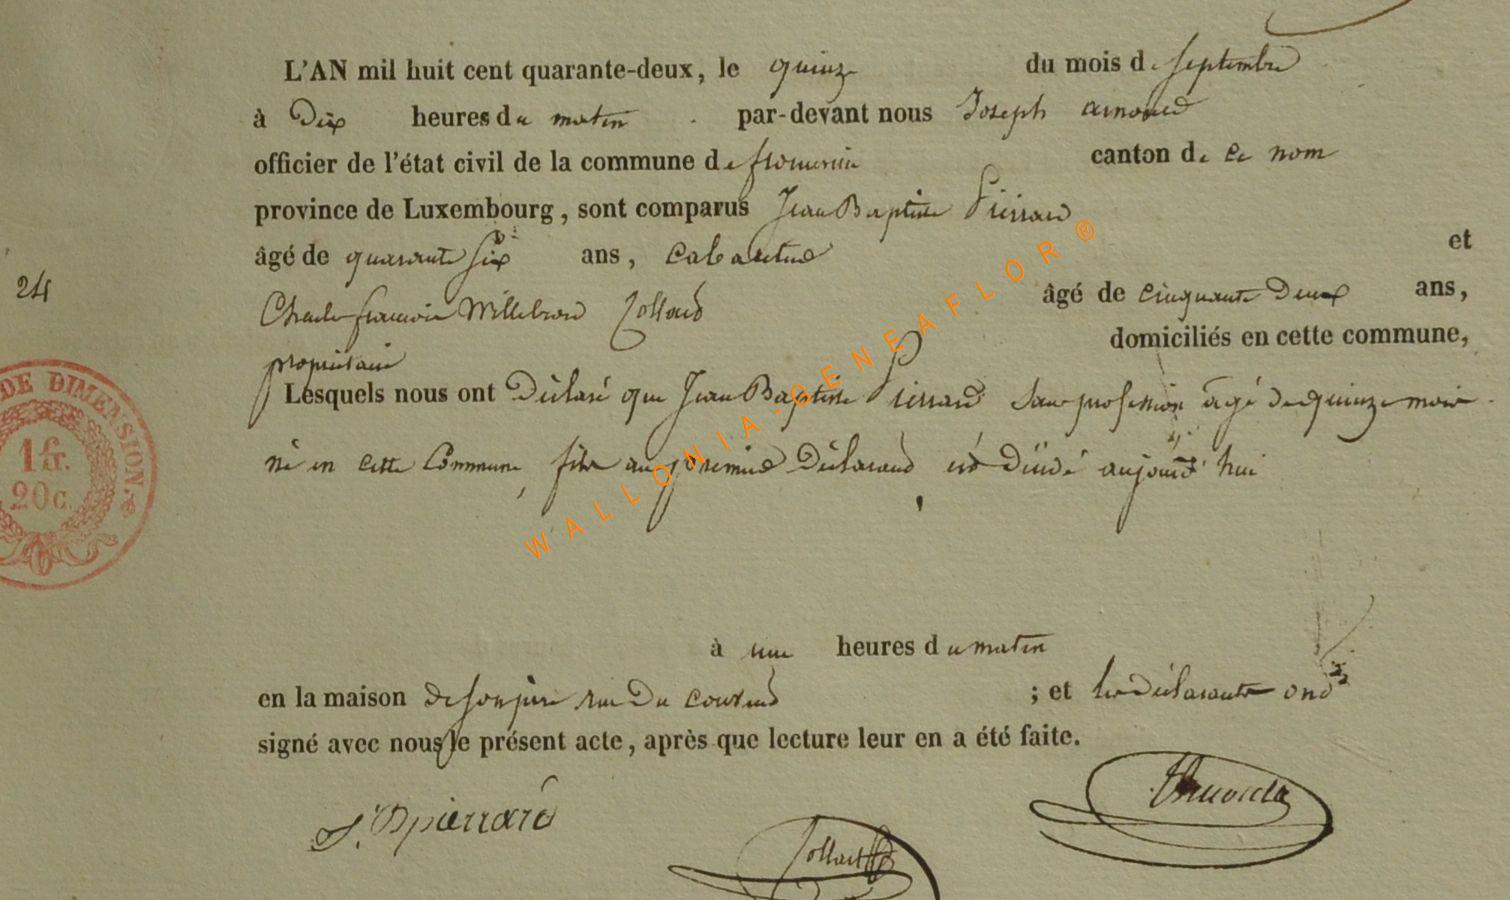 L'AN mil huit cent quarante-deux, le quinze du mois de septembre
à Dix heures du matin par-devant nous Joseph arnould
officier de l'état civil de la commune de canton de ce nom
province de Luxembourg, sont comparus Jean Baptiste Pierrard
âgé de quarante six ans, cabaretier et
Charles françois Willebrord Collard âgé de cinquante Deux ans,
propriétaire domiciliés en cette commune,
24
Lesquels nous ont Déclaré que Jean Baptiste Pierrard sans profession âgé de quinze mois
né en cette Commune, fils au premier Déclarant est Décédé aujourd'hui
DE DIMENSION.
1 fr.
20 c.
à une heures du matin
en la maison de son père rue Du ; et les déclarants ont
signé avec nous le présent acte, après que lecture leur en a été faite.
J. Bpierrard
Collard
WALLONIA-GENEAFLOR ®